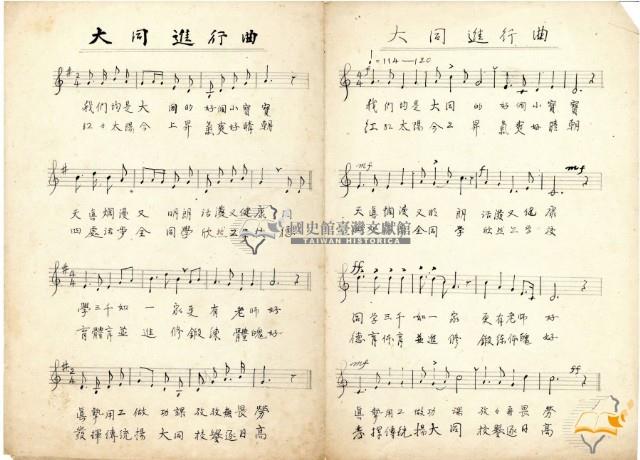 大同進行曲
我們均是大同的好個小寶寶
紅太陽今上昇氣爽好晴朝
天真爛漫又明朗活潑又健康
四處活步全同學欣
學三千如一家更有老師好
育體育並進修鍛鍊體魄好
真摯用工做功課孜孜無畏勞
發揮傳統揚大同校譽逐日高
大同進行曲
♩=114—120
我們均是大同的好個小寶寶
紅紅太陽今上昇氣爽好晴朝
mf
f
mf
天真爛漫又明朗活潑又健康
全同學欣
ff
同学三千如一家更有老师好
德育体育並進修鍛鍊体魄好
mf
ff
真摯用工做功課孜孜無畏勞
發揮傳統揚大同校譽逐日高
國史館臺灣文獻館
TAIWAN HISTORICA